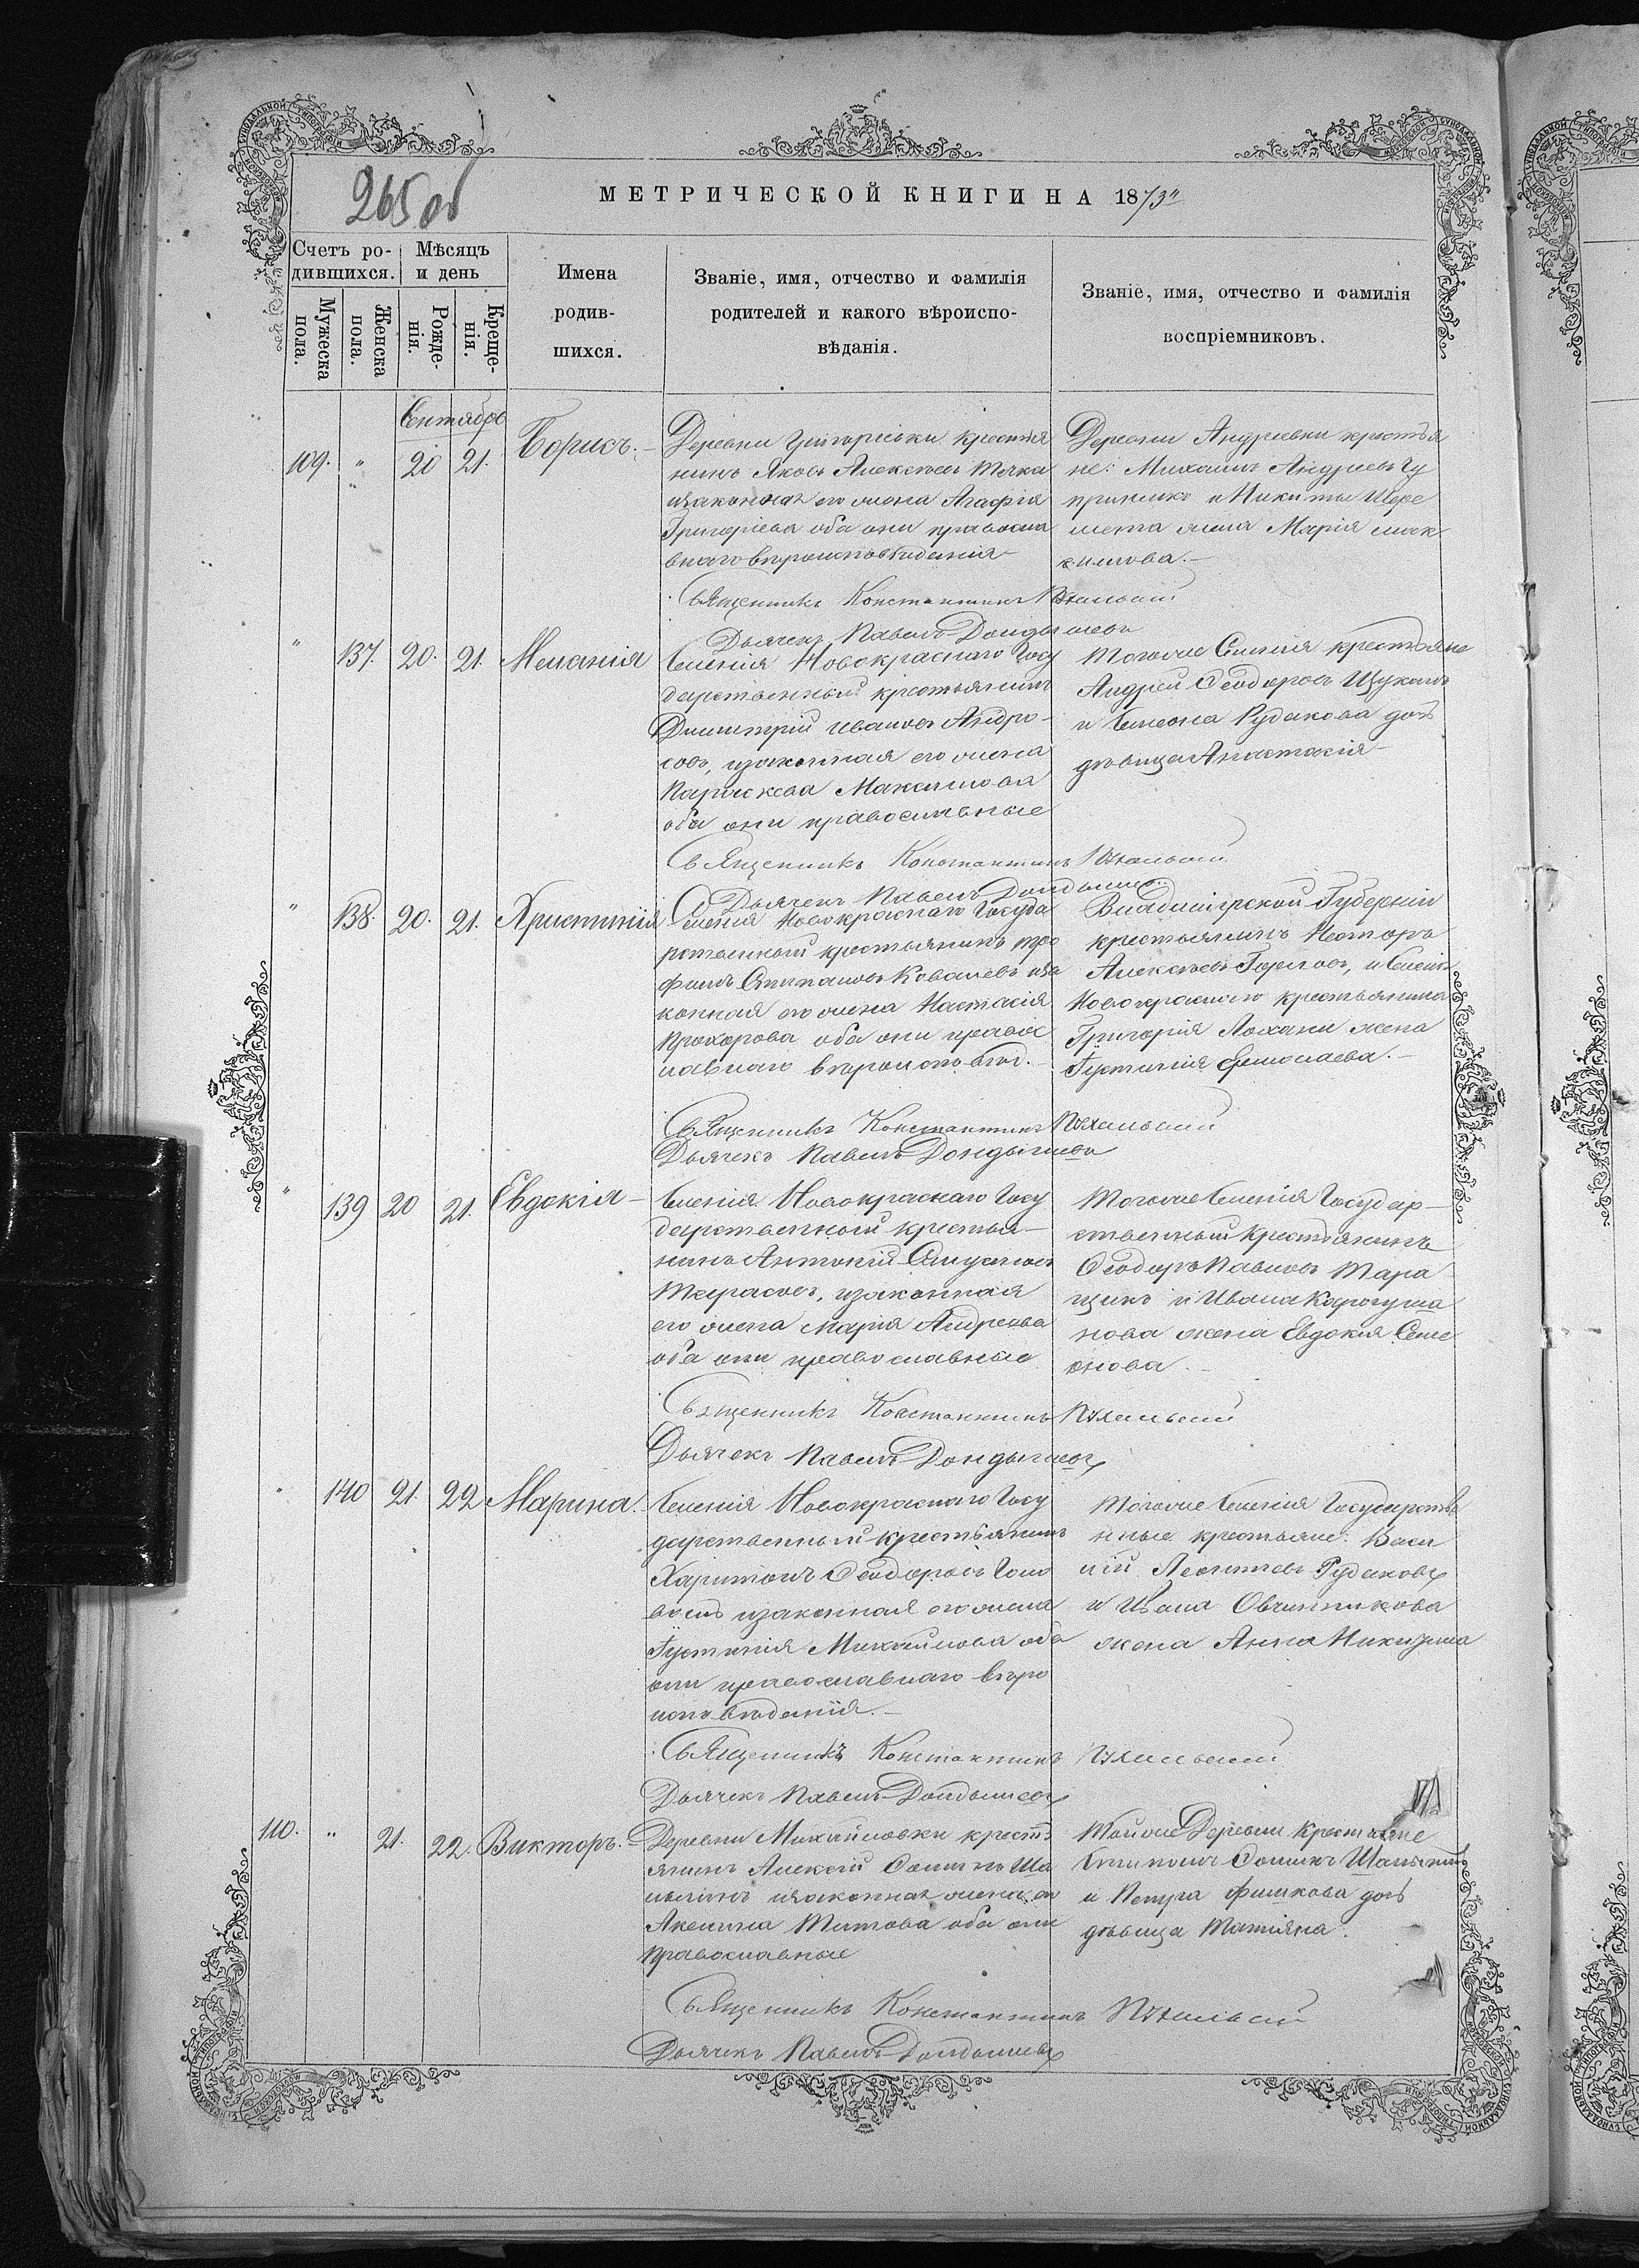 265 об
МЕТРИЧЕСКОЙ КНИГИ НА 1873 г
Счетъ ро-
дившихся.
Мѣсяцъ
и день
Мужеска
пола.
Женска
пола.
Рожде-
нія.
Креще-
нія.
Имена
родив-
шихся.
Званіе, имя, отчество и фамилія
родителей и какого вѣроиспо-
вѣданія.
Званіе, имя, отчество и фамилія
воспріемниковъ.
Сентябрь
109. " 20 21. Борисъ.
Деревни Григоріевки крестья
нинъ Яковъ Алексѣевъ
изаконная его жена Агафія
Григоріева оба они правосла
внаго вѣроисповѣданія
Деревни Андреевки крестья
не: Михаилъ Андреевъ
и Никиты Шере
мета жена Марія Мак
симова.
Священникъ Константинъ
Дьячекъ Павелъ Дондышевъ
" 137. 20. 21. Меланія
Селенія Новокраснаго Госу
дарственный крестьянинъ
Димитрій Ивановъ Андро-
совъ, изаконная его жена
Параскева Максимова
оба они православные
Тогоже Селенія крестьяне
Андрей Ѳеодоровъ Щукинъ
и Симеона Рудакова дочь
дѣвица Анастасія
Священникъ Константинъ
Дьячекъ Павелъ Дондышевъ
" 138. 20. 21. Христинія
Селенія Новокраснаго Госуда
рственный крестьянинъ Тро
фимъ Степановъ Ковалевъ иза
конная его жена Настасія
Прохорова оба они правос
лавнаго вѣроисповѣд.
Владимірской Губерніи
крестьянинъ Несторъ
Алексѣевъ Горловъ, и Селенія
Новокраснаго крестьянина
Григорія Лохани жена
Іустинія Ермолаева.
Священникъ Константинъ
Дьячекъ Павелъ Дондышевъ
" 139 20 21. Евдокія
Селенія Новокраснаго Госу
дарственный крестья-
нинъ Антоній
Тарасовъ, изаконная
его жена Марія Андреева
оба они православные
Тогоже Селенія Государ-
ственный крестьянинъ
Ѳеодоръ Павловъ Тара
щикъ и Ивана
нова жена Евдокія Семе
онова.
Священникъ Константинъ
Дьячекъ Павелъ Дондышевъ
" 140 21. 22 Марина.
Селенія Новокраснаго Госу
дарственный крестьянинъ
Харитонъ Ѳеодоровъ Голо
вень изаконная его жена
Іустинія Михайлова оба
они православнаго вѣро
исповѣданія.
Тогоже Селенія Государстве
нные крестьяне: Васи
лій Леонтіевъ Рудаковъ
и Ивана Овчинникова
жена Анна Никитина
Священникъ Константинъ
Дьячекъ Павелъ Дондышевъ
110. " 21. 22. Викторъ.
Деревни Михайловки кресть
янинъ Алексѣй Ша
изаконная жена его
Акелина Титова оба они
православные
Тойже Деревни Крестьяне
и Петра Фишкова дочь
дѣвица Татіяна.
Священникъ Константинъ
Дьячекъ Павелъ Дондышевъ